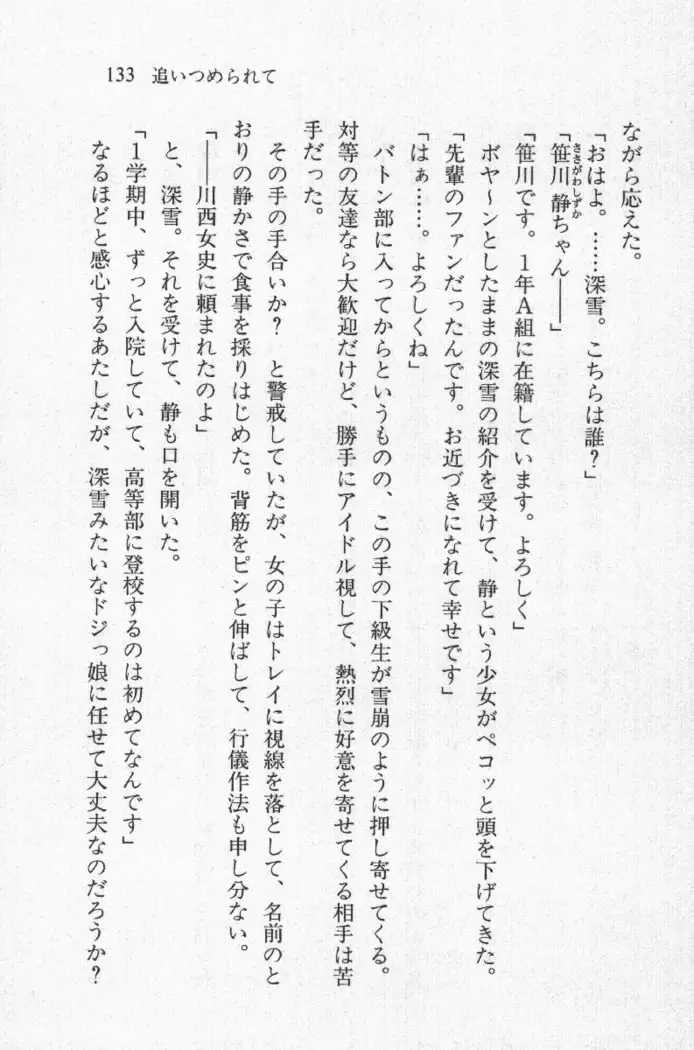 133 追いつめられて
ながら応えた。
「おはよ。……深雪。こちらは誰?」
「笹川 静ちゃん――」
ささがわしずか
「笹川です。1年A組に在籍しています。よろしく」
ボヤ〜ンとしたままの深雪の紹介を受けて、静という少女がペコッと頭を下げてきた。
「先輩のファンだったんです。お近づきになれて幸せです」
「はぁ……。よろしくね」
バトン部に入ってからというものの、この手の下級生が雪崩のように押し寄せてくる。
対等の友達なら大歓迎だけど、勝手にアイドル視して、熱烈に好意を寄せてくる相手は苦
手だった。
その手の手合いか? と警戒していたが、女の子はトレイに視線を落として、名前のと
おりの静かさで食事を採りはじめた。背筋をピンと伸ばして、行儀作法も申し分ない。
「――川西女史に頼まれたのよ」
と、深雪。それを受けて、静も口を開いた。
「1学期中、ずっと入院していて、高等部に登校するのは初めてなんです」
なるほどと感心するあたしだが、深雪みたいなドジっ娘に任せて大丈夫なのだろうか?